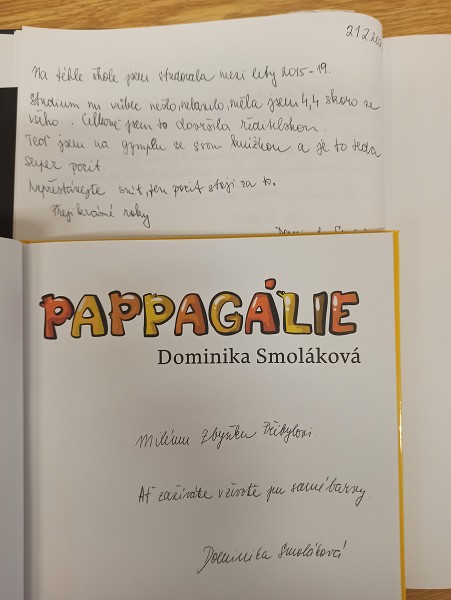 21.2.202
Na téhle škole jsem studovala mezi lety 2015-19.
Studium mi vůbec nešlo, nebavilo, měla jsem 4,4 skoro ze
všeho. Celkově jsem to dovršila ředitelskou.
Teď jsem na gymplu se svou knížkou a je to teda
super pocit
Nepřestávejte snít, ten pocit stojí za to.
Přeji krásné roky
PAPPAGÁLIE
Dominika Smoláková
Milému Zbyňku Přibylovi
Ať zažíváte v životě jen samé barvy
Dominika Smoláková